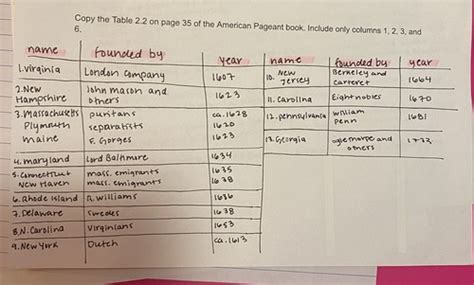 Copy the Table 2.2 on page 35 of the American Pageant book. Include only columns 1, 2, 3, and
6.
name founded by year
1. Virginia London Company 1607
2. New Hampshire John Mason and others 1623
3. Massachusetts puritans ca. 1628
Plymouth separatists 1620
maine F. Gorges 1623
4. maryland Lord Baltimore 1634
5. Connecticut mass. emigrants 1635
New Haven mass. emigrants 1638
6. Rhode Island R. Williams 1636
7. Delaware Swedes 1638
8. N. Carolina Virginians 1653
9. New York Dutch ca. 1613
name founded by year
10. New Jersey Berkeley and Carteret 1664
11. Carolina Eight nobles 1670
12. pennsylvania William Penn 1681
13. Georgia oglethorpe and others 1733